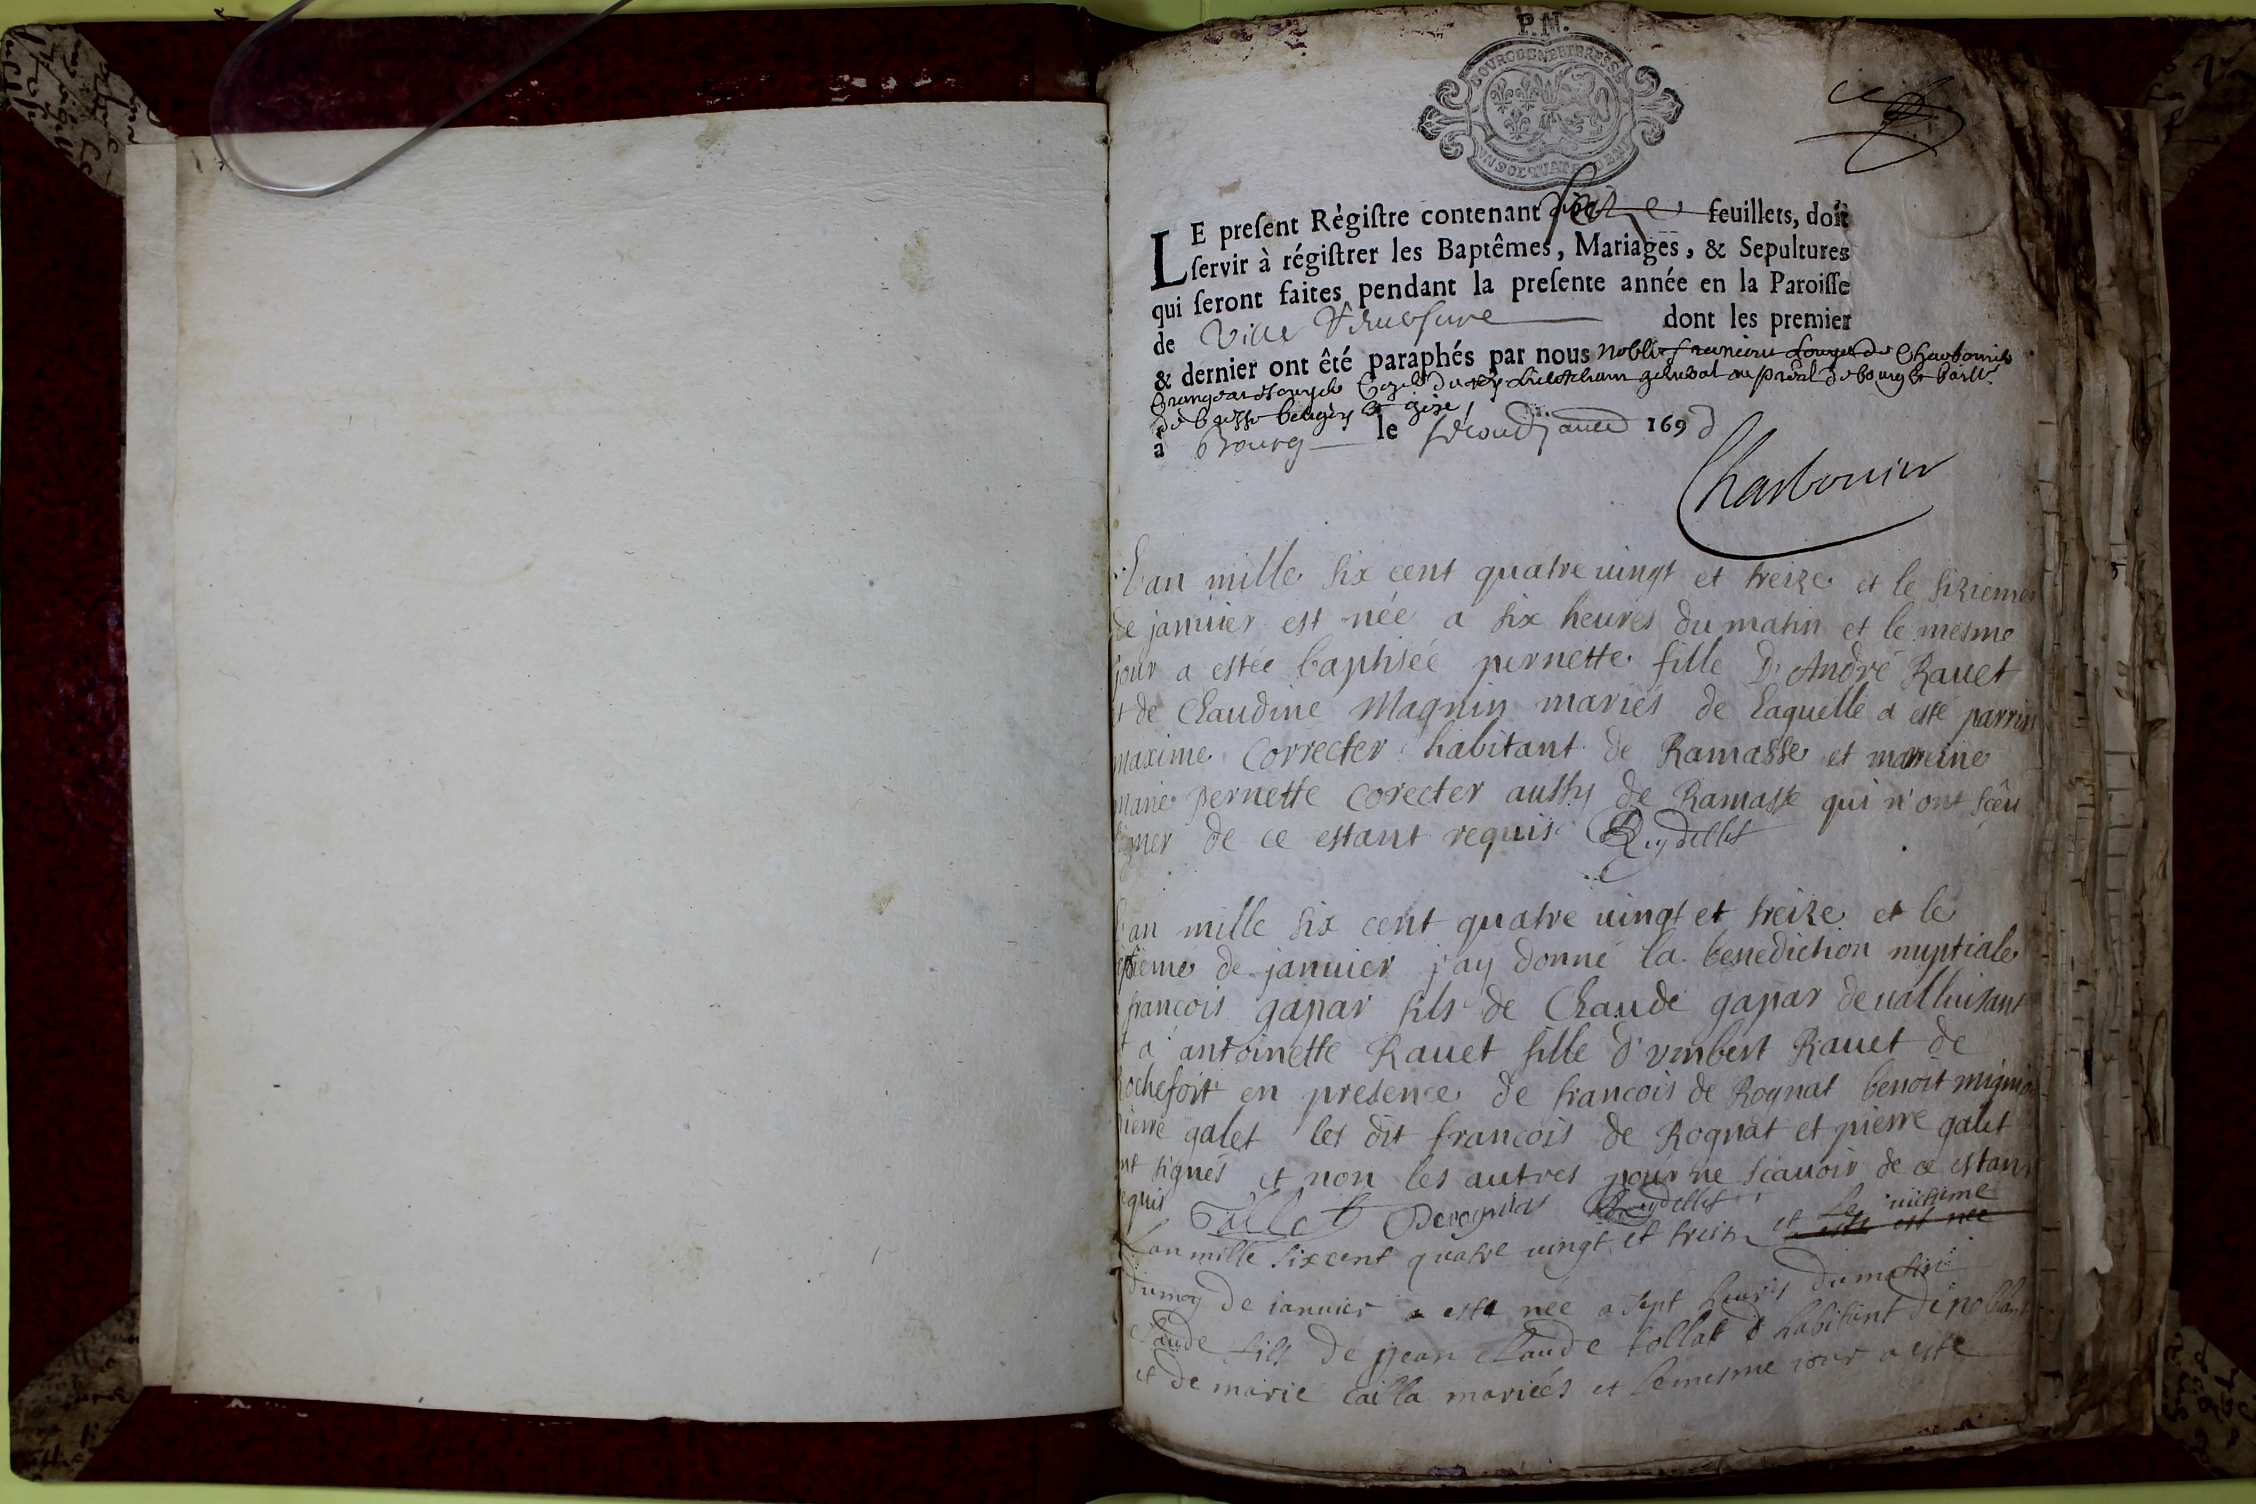 P.N.
BOURGOGNE ET BRESSE
UN SOL QUATRE DEN
LE preſent Régiſtre contenant feuillets, doit
ſervir à régiſtrer les Baptêmes, Mariages, & Sepultures
qui ſeront faites pendant la preſente année en la Paroiſſe
de Ville dont les premier
& dernier ont êté paraphés par nous noble
de bresse bugey et gex
à bourg le second 169
Charbonier
L'an mille six cent quatre uingt et treize et le sizieme
de januier est née a six heures du matin et le mesme
jour a estée baptisée pernette fille D'André Rauet
et de Claudine Magnin mariés de laquelle a esté parrin
maxime Correcter habitant de Ramasse et marreine
marie pernette corecter aussy de Ramasse qui n'ont sceu
signer de ce estant requis Reydellet
L'an mille six cent quatre uingt et treize et le
de januier j'ay donné la benediction nuptiale
françois gapar fils de Claude gapar de ualluisant
et a antoinette Rauet fille d'umbert Rauet de
Rochefort en presence de francois de Rognat benoit
pierre galet les dit francois de Rognat et pierre galet
ont signés et non les autres pour ne scauoir de ce estant
requis Gallet Derognat Reydellet
L'an mille six cent quatre uingt et treize et le uictieme
a esté est née
du moy de ianuier a esté née a sept heures du matin
claude fils de jean claude tollat habitant de
et de marie cailla mariées et le mesme iour a esté